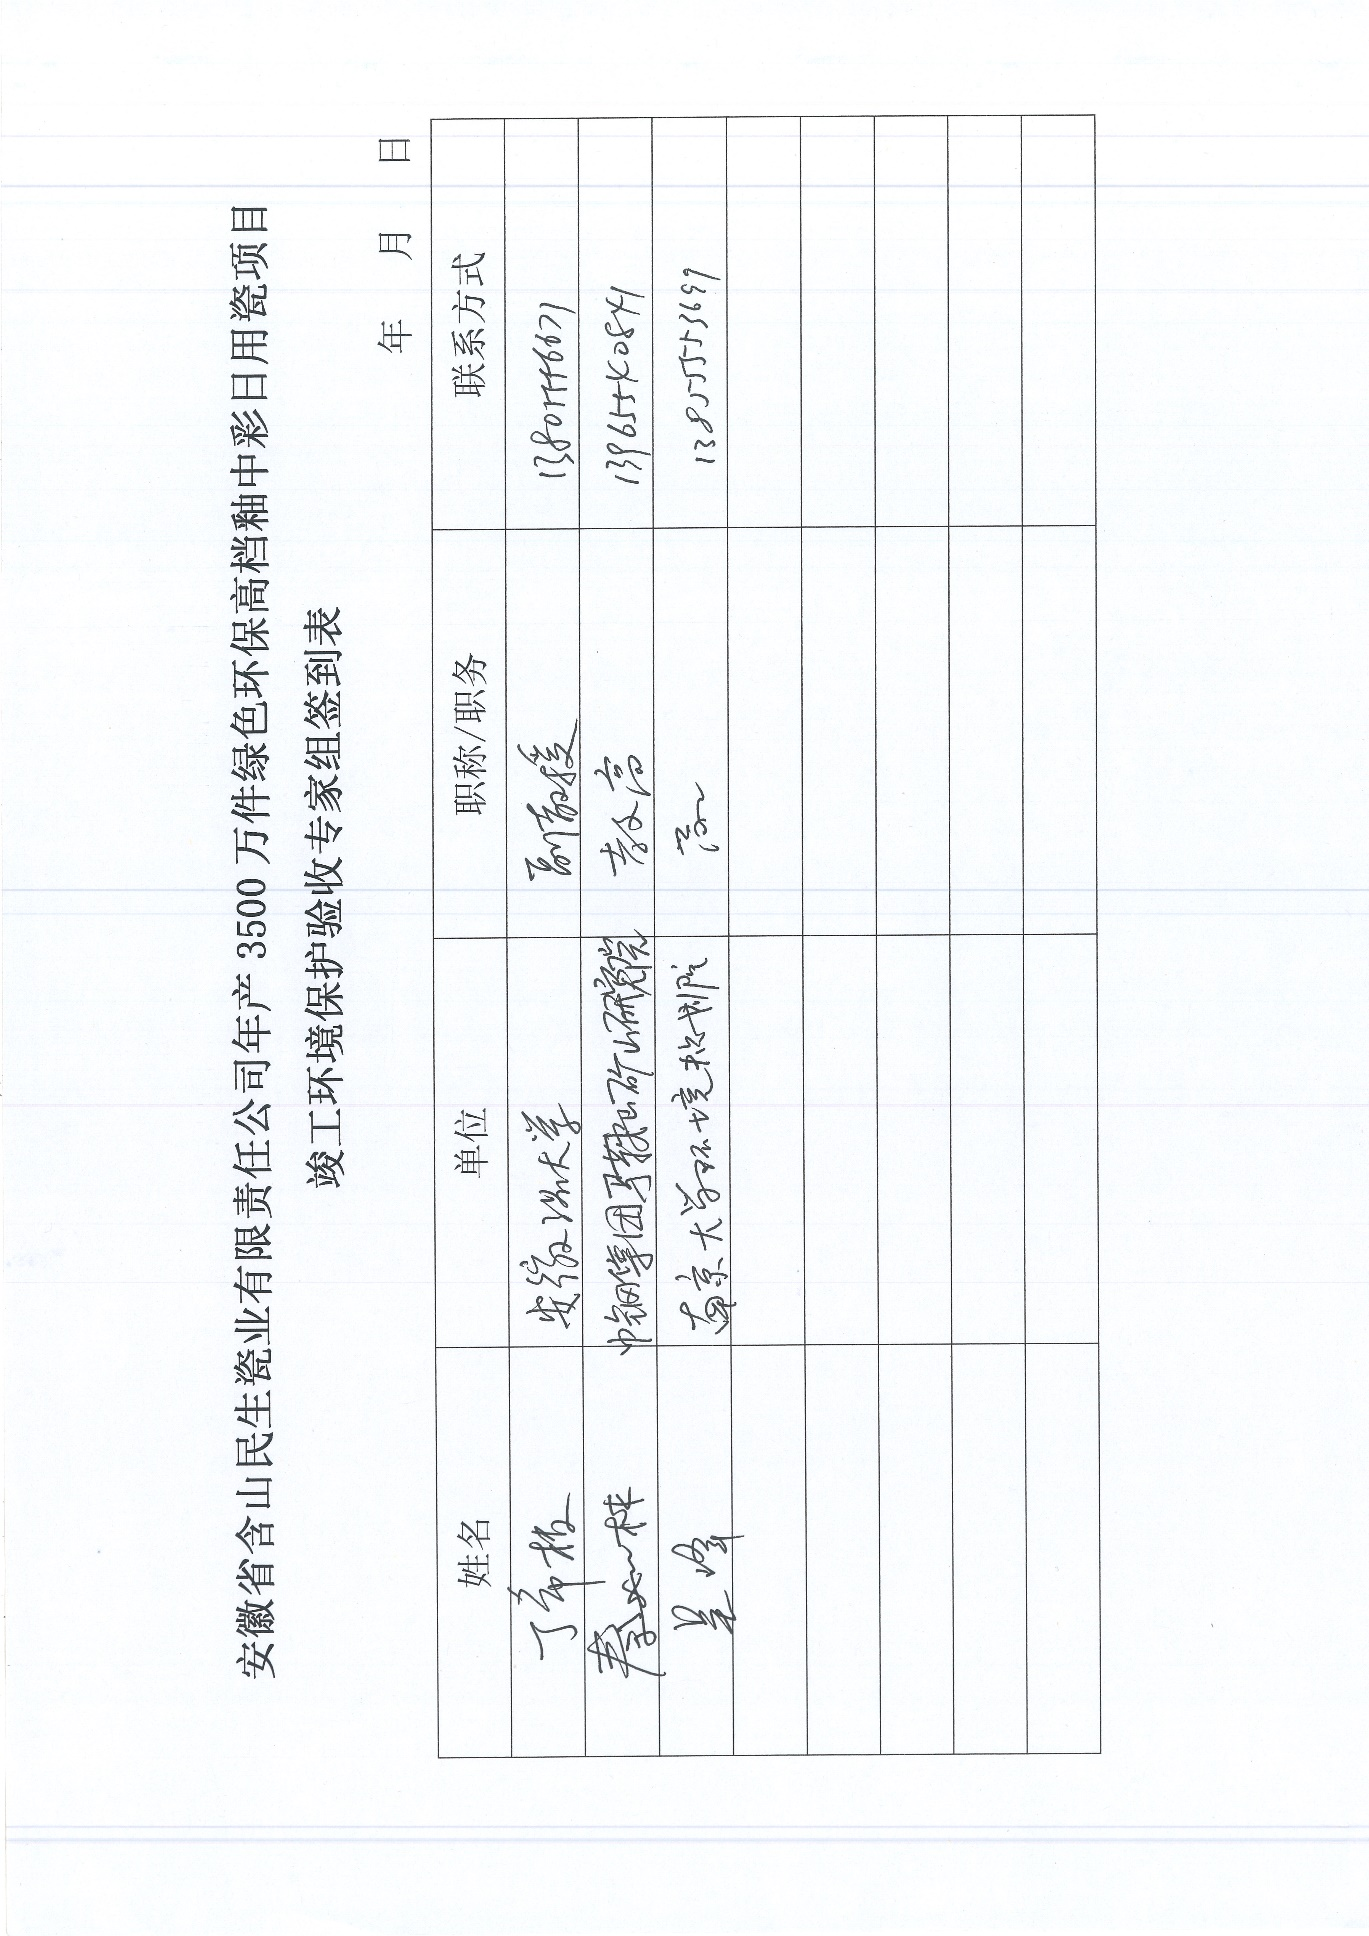 安徽省含山民生瓷业有限责任公司年产 3500 万件绿色环保高档釉中彩日用瓷项目
竣工环境保护验收专家组签到表
年 月 日
姓名 单位 职称/职务 联系方式
丁希楼 安徽工业大学 副教授
中钢集团马鞍山矿山研究院 教高 13965540841
吴峰 南京大学环境规划院 高工 13855553699